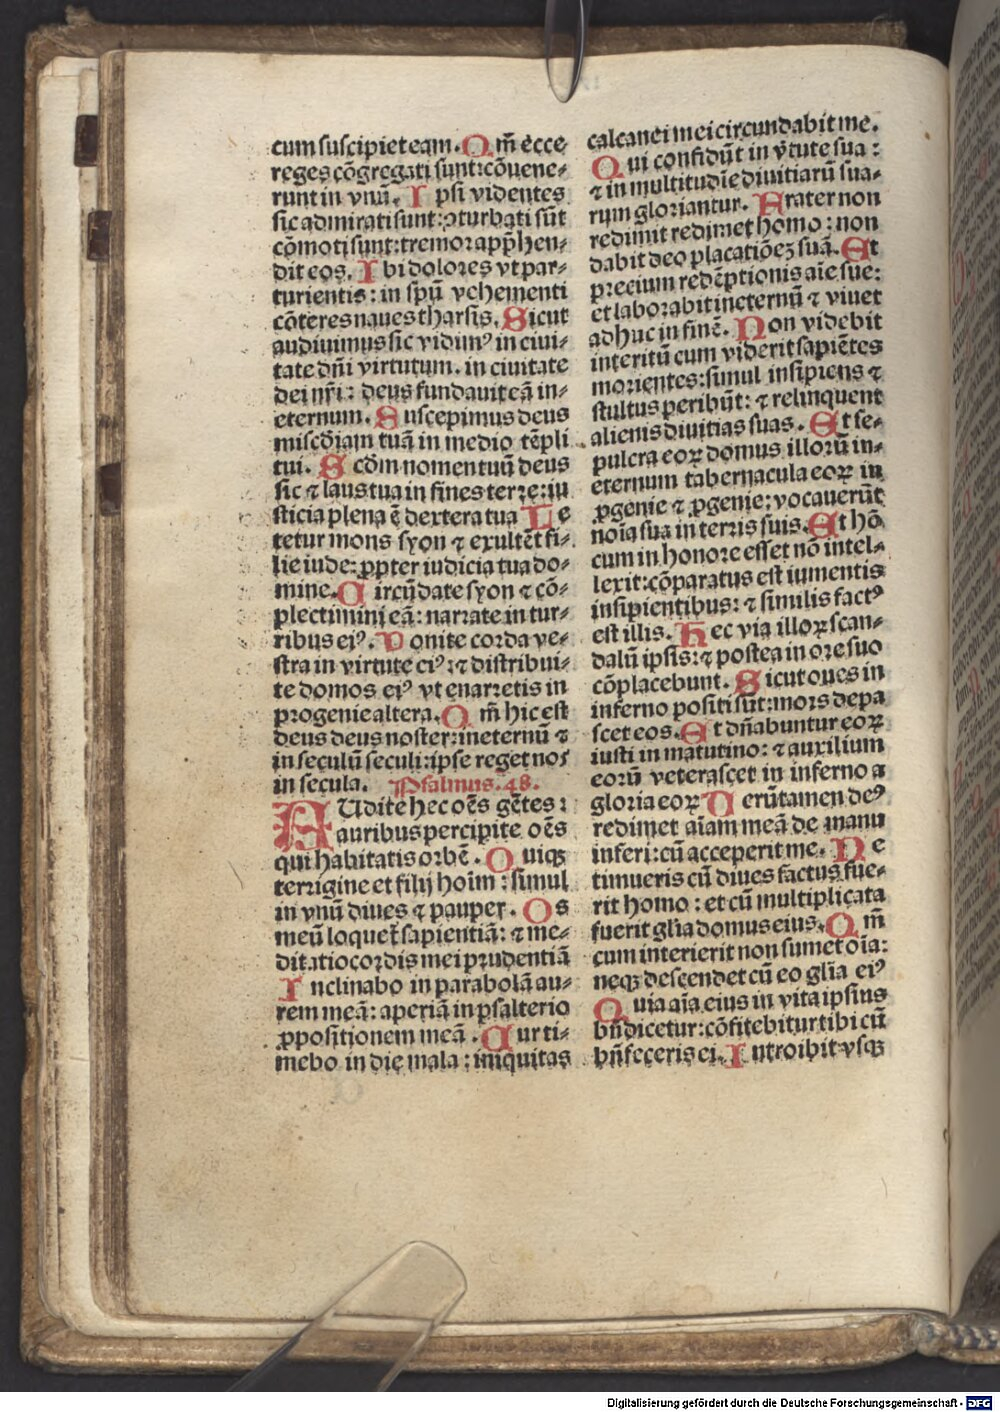 cum suscipiet eam. Qm̄ ecce
reges cōgregati sunt: cōuene⸗
runt in vnū. Ipsi videntes
sic admirati sunt: ꝯturbati sūt
cōmoti sunt: tremor app̄hen⸗
dit eos. Ibi dolores vt par⸗
turientis: in spū vehementi
cōteres naues tharsis. Sicut
audiuimus sic vidimꝰ in ciui⸗
tate dn̄i virtutum. in ciuitate
dei nr̄i: deus fundauit eā in⸗
eternum. Suscepimus deus
misc̄diam tuā in medio tēpli
tui. Scdm nomen tuū deus
sic ⁊ laus tua in fines terre: iu
sticia plena ē dextera tua Le
tetur mons syon ⁊ exultēt fi⸗
lie iude: ꝓpter iudicia tua do⸗
mine. Circūdate syon ⁊ cō⸗
plectimini eā: narrate in tur⸗
ribus eiꝰ. Ponite corda ve⸗
stra in virtute eiꝰ: ⁊ distribui⸗
te domos eiꝰ vt enarretis in
progenie altera. Qm̄ hic est
deus deus noster: ineternū ⁊
in seculū seculi: ipse reget nos
in secula. Psalmus. 48.
AUdite hec oēs gētes:
auribus percipite oēs
qui habitatis orbē. Quiqꝫ
terrigine et filij hoīm: simul
in vnū diues ⁊ pauper. Os
meū loquet̄ sapientiā: ⁊ me⸗
ditatio cordis mei prudentiā
Inclinabo in parabolā au⸗
rem meā: aperiā in psalterio
ꝓpositionem meā. Cur ti⸗
mebo in die mala: iniquitas
calcanei mei circundabit me.
Qui confidūt in v̄tute sua:
⁊ in multitudīe diuitiarū sua⸗
rum gloriantur. Frater non
redimit redimet homo: non
dabit deo placatiōeꝫ suā. Et
precium redēptionis aīe sue:
et laborabit ineternū ⁊ viuet
adhuc in finē. Non videbit
interitū cum viderit sapiētes
morientes: simul insipiens ⁊
stultus peribūt: ⁊ relinquent
alienis diuitias suas. Et se⸗
pulcra eoꝝ domus illorū in⸗
eternum tabernacula eoꝝ in
ꝓgenie ⁊ ꝓgenie: vocauerūt
noīa sua in terris suis. Et hō
cum in honore esset nō intel⸗
lexit: cōparatus est iumentis
insipientibus: ⁊ similis factꝰ
est illis. Hec via illoꝝ scan⸗
dalū ipsis: ⁊ postea in ore suo
cōplacebunt. Sicut oues in
inferno positi sūt: mors depa
scet eos. Et dn̄abuntur eoꝝ
iusti in matutino: ⁊ auxilium
eorū veterascet in inferno a
gloria eoꝝ Uerūtamen deꝰ
redimet aīam meā de manu
inferi: cū acceperit me. Ne
timueris cū diues factus fue⸗
rit homo: et cū multiplicata
fuerit glīa domus eius. Qm̄
cum interierit non sumet oīa:
neqꝫ descendet cū eo glīa eiꝰ
Quia aīa eius in vita ipsius
bn̄dicetur: cōfitebitur tibi cū
bn̄feceris ei. Introibit vsqꝫ
Digitalisierung gefördert durch die Deutsche Forschungsgemeinschaft - DFG